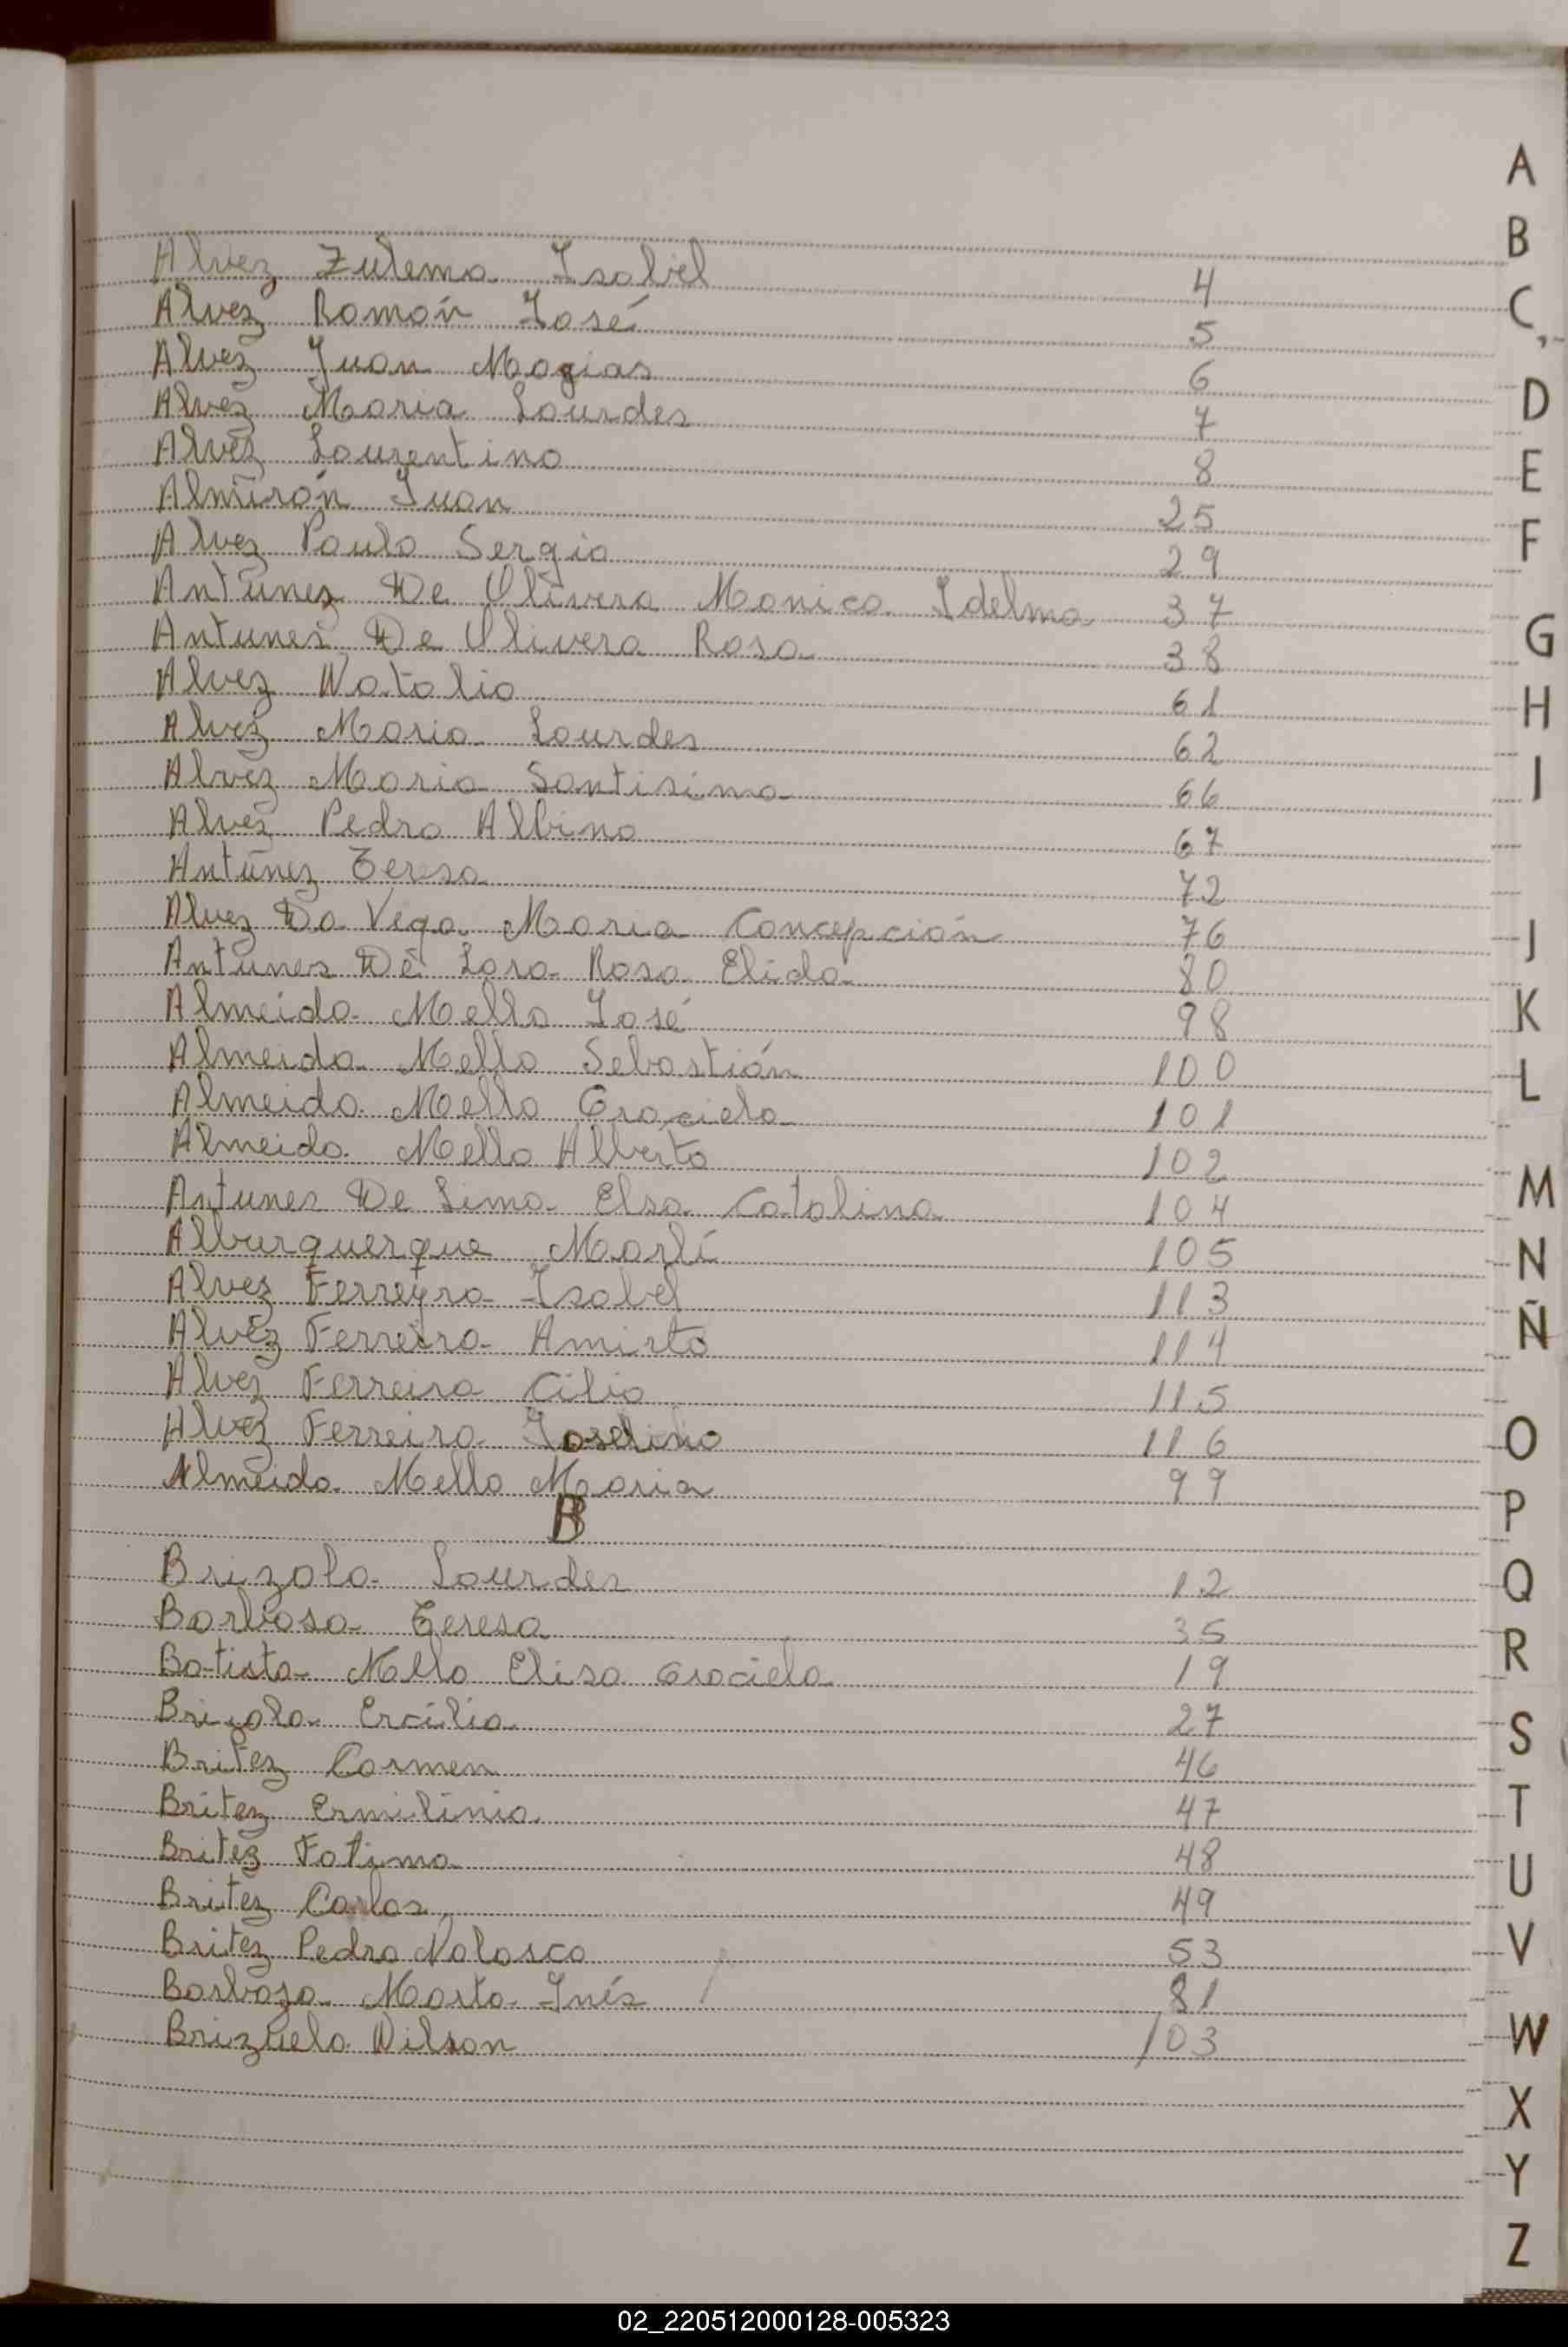 Alvez Zulema Isabel 4
Alvez Ramón José 5
Alvez Juan Matias 6
Alvez Maria Lourdes 7
Alvez Laurentino 8
Almirón Juan 25
Alvez Paulo Sergio 29
Antunez De Olivera Monica Idelma 37
Antunes De Olivera Rosa 38
Alvez Natalio 61
Alvez Maria Lourdes 62
Alvez Maria Santisima 66
Alvez Pedro Albino 67
Antúnez Teresa 72
Alvez Da Vega Maria Concepción 76
Antunes De Lara Rosa Elida 80
Almeida Mello José 98
Almeida Mello Sebastián 100
Almeida Mello Graciela 101
Almeida Mello Alberto 102
Antunes De Lima Elsa Catalina 104
Alburquerque Marlí 105
Alvez Ferreyra Isabel 113
Alvez Ferreira Amirto 114
Alvez Ferreira Cilio 115
Alvez Ferreira Joselino 116
Almeida Mello Maria 99
B
Brizola Lourdes 12
Barbosa Teresa 35
Batista Mello Elisa Graciela 19
Brizola Ercilia 27
Britez Carmen 46
Britez Ermilinia 47
Britez Fatima 48
Britez Carlos 49
Britez Pedro Nolasco 53
Barboza Marta Inés 81
Brizuela Wilson 103
A
B
C
D
E
F
G
H
I
J
K
L
M
N
Ñ
O
P
Q
R
S
T
U
V
W
X
Y
Z
02_220512000128-005323